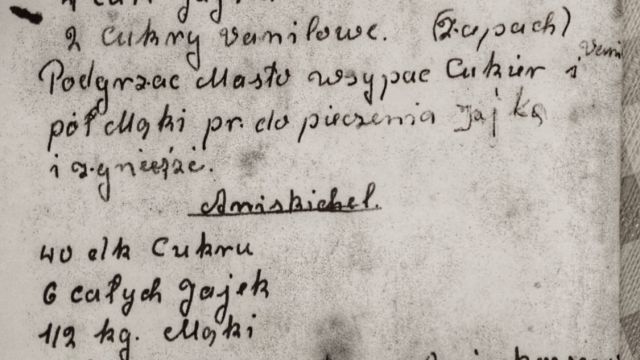 2 Cukry Vanilowe. (Zapach)
Podgrzac Masło wsypac Cukier i Vani
pół Mąki pr. do pieczenia Jajka
i zgnieść.
Aniskichel.
40 dk Cukru
6 całych Jajek
1/2 kg. Mąki